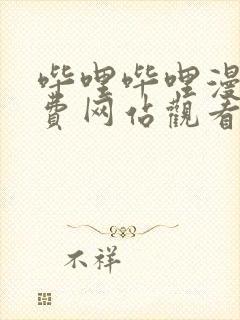 哔哩哔哩漫
費网佔觀看
不祥